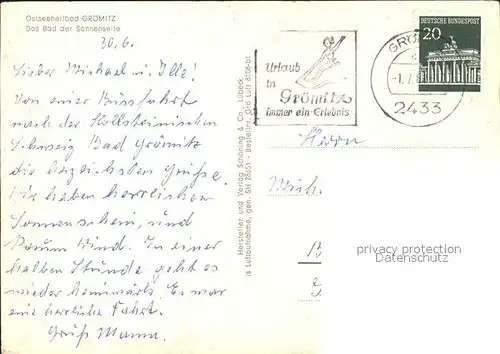 Ostseeheilbad GRÖMITZ
Das Bad der Sonnenseite
30.6.
Lieber Michael u. Ille!
Von einer Busfahrt
nach der Hollsteinischen
Schweiz Bad Grömitz
die herzlichsten Grüße.
Wir haben herrlichen
Sonnenschein, und
kaum Wind. In einer
halben Stunde geht es
wieder heimwärts. Es war
eine herrliche Fahrt.
Gruß Mama.
Hersteller und Verlag Schöning & Co., Lübeck
Luftaufnahme, gen. SH 28651 - Bestellnr. Grö Luft 8108-bt
Urlaub
in
Grömitz
immer ein Erlebnis
GRÖ
-1.7.
2433
DEUTSCHE BUNDESPOST
20
Herrn
Mich.
privacy protection
Datenschutz